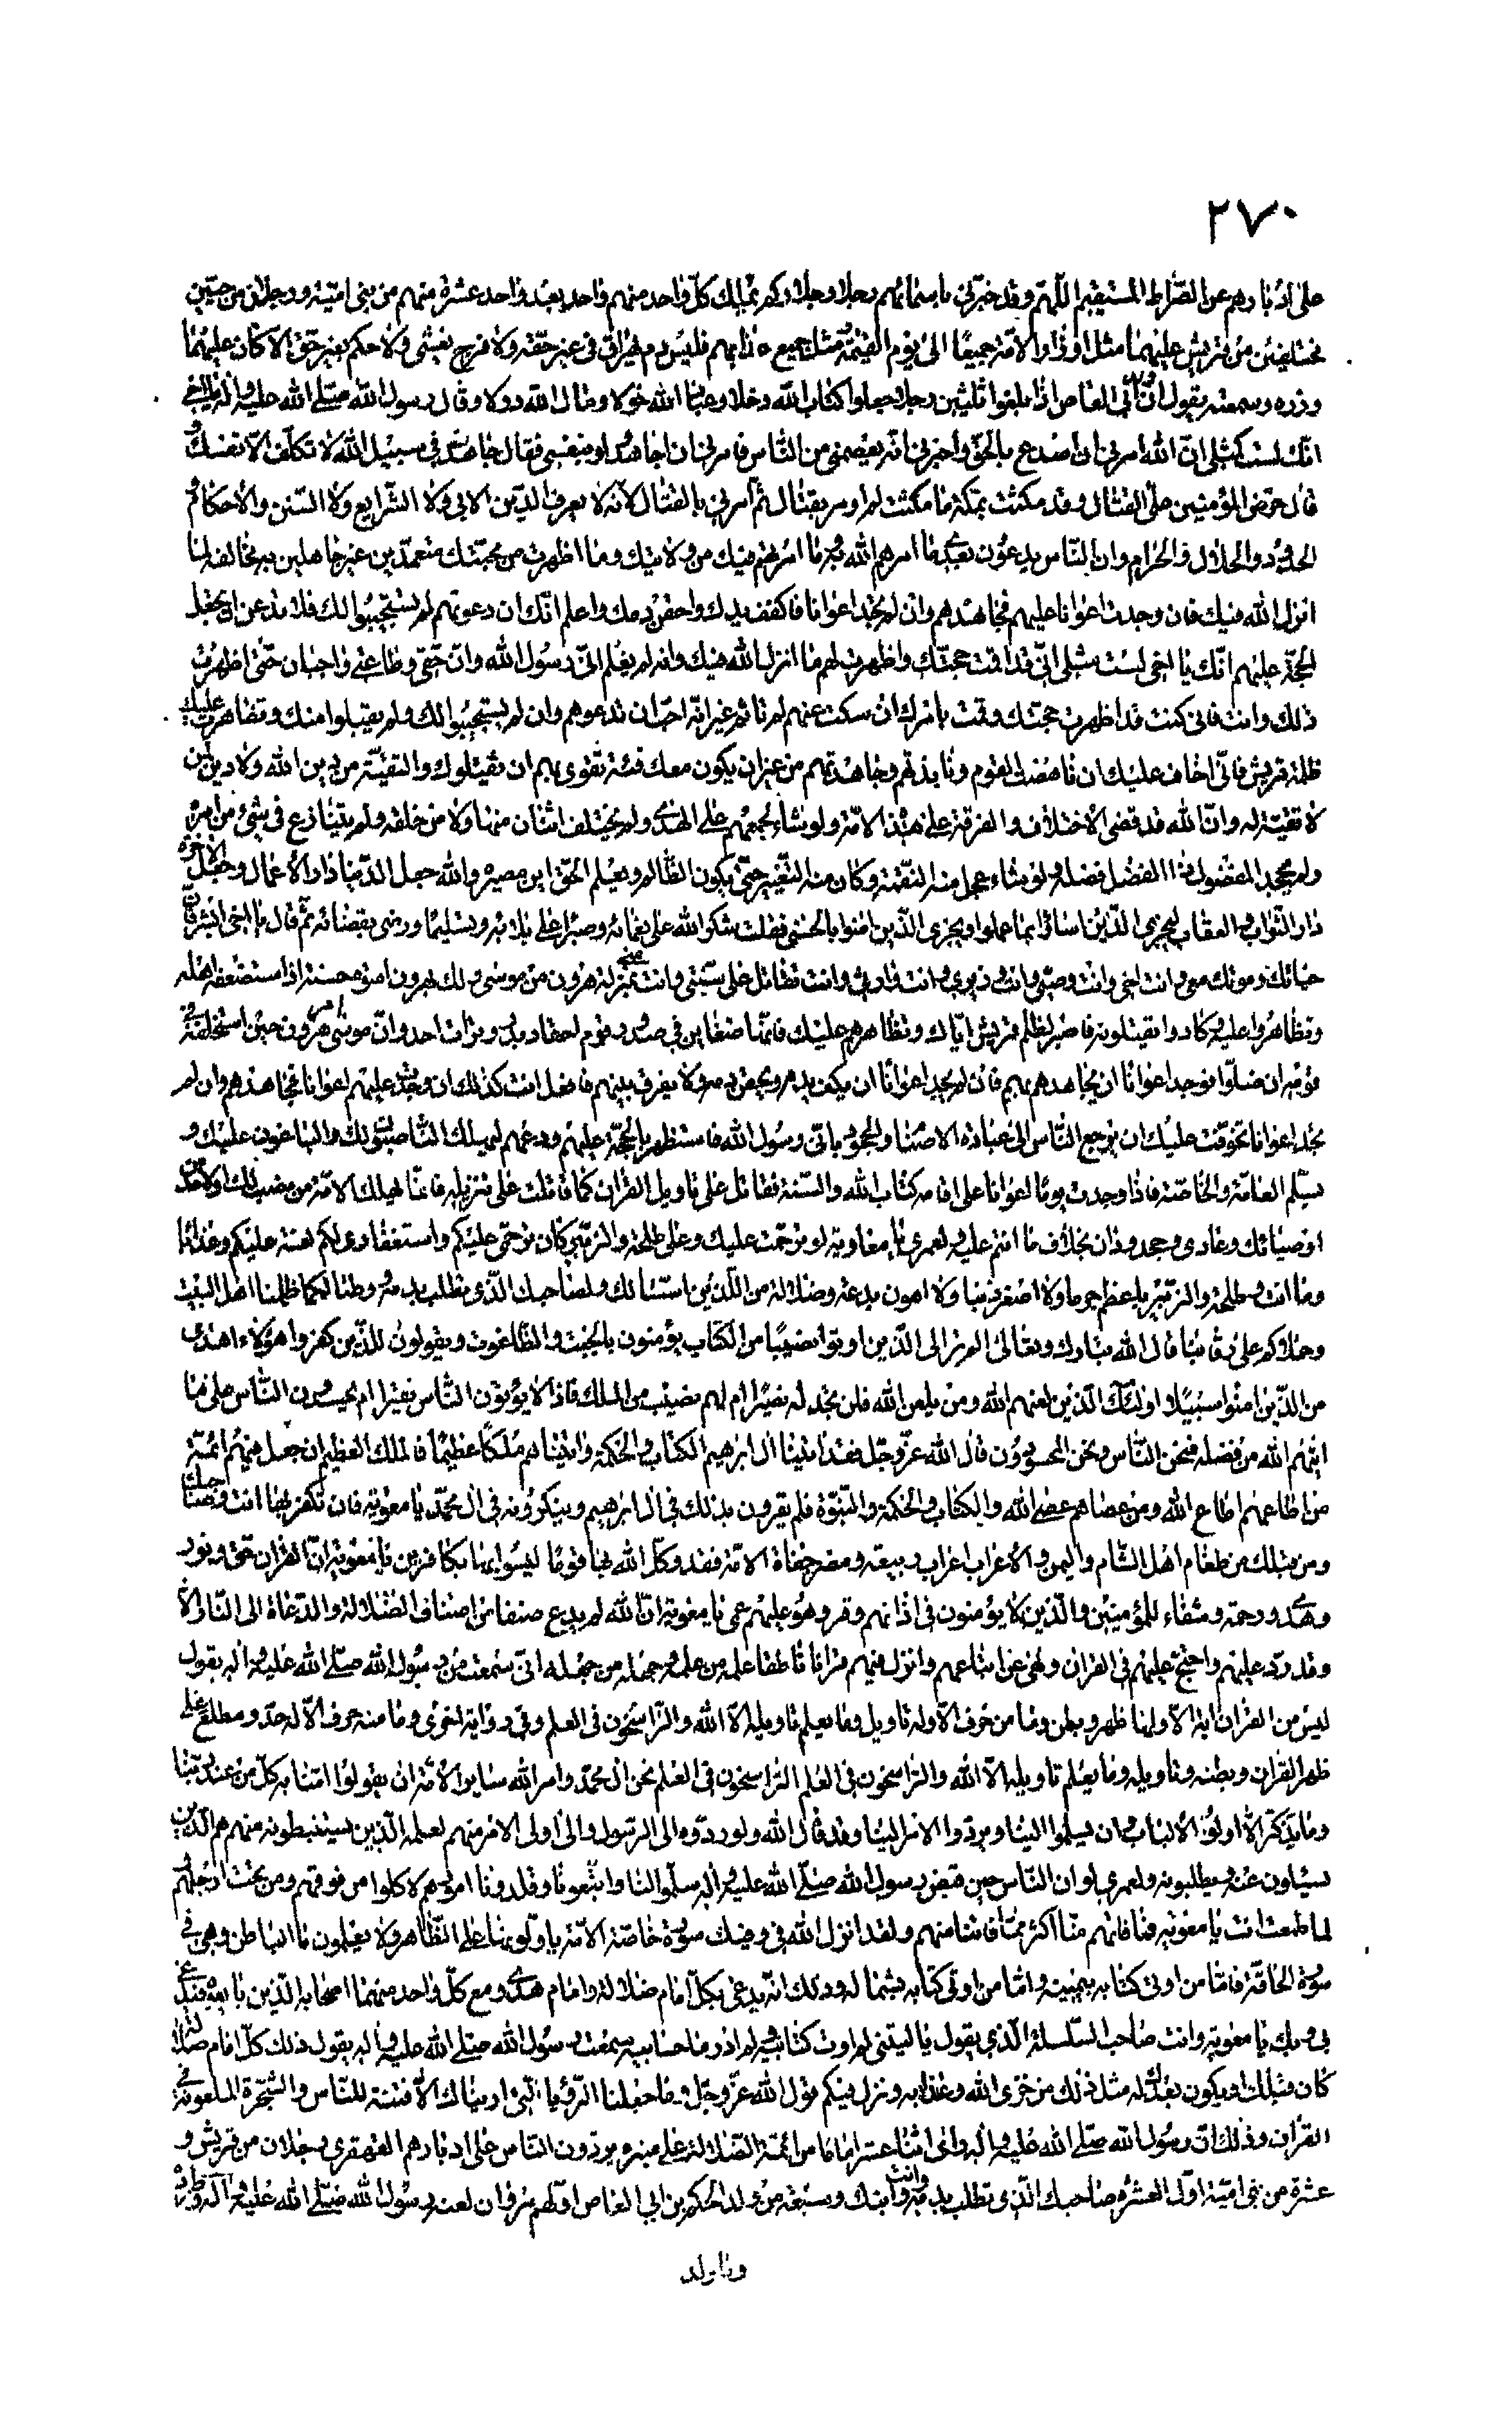 ٢٧٠
على ادبارهم عن الصّراط المستقيم اللّهمّ وقد خبّرني باسمائهم رجلا رجلا وكم يملك كلّ واحد منهم واحد بعد واحد عشرة منهم من بني اميّة ورجلان من حيّين
مختلفين من قريش عليهما مثل اوزار الامّة جميعا الى يوم القيمة ومثل جميع عذابهم فليس دم يهراق في غير حقّه ولا فرج يغشى ولا حكم بغير حقّ الا كان عليهما
وزره وسمعته يقول انّ بني ابي العاص اذا بلغوا ثلثين رجلا جعلوا كتاب الله دخلا وعباد الله خولا ومال الله دولا وقال رسول الله صلّى الله عليه وآله يا اخي
انّك لست كمثلي انّ الله امرني ان اصدع بالحقّ واخبرني انّه يعصمني من النّاس فامرني ان اجاهد ولو بنفسي فقال جاهد في سبيل الله لا تكلّف الّا نفسك و
قال حرّض المؤمنين على القتال وقد مكثت بمكّة ما مكثت لم اومر بقتال ثمّ امرني بالقتال لانّه لا يعرف الدّين الا بي ولا الشّرايع ولا السّنن والاحكام و
الحدود والحلال والحرام وان النّاس يدعون بعدي ما امرهم الله به وما امرتهم فيك من ولايتك وما اظهرت من محبّتك متعمّدين غير جاهلين به مخالفة لما
انزل الله فيك فان وجدت اعوانا عليهم فجاهدهم وان لم تجد اعوانا فاكفف يدك واحقن دمك واعلم انّك ان دعوتهم لم يستجيبوا لك فلا تدعن ان تجعل
الحجّة عليهم انّك يا اخي لست مثلي انّي قد اقمت حجّتك واظهرت لهم ما انزل الله فيك وانه لم يعلم انّي رسول الله وانّ حقّي وطاعتي واجبان حتّى اظهرت
ذلك وانت فاني كنت قد اظهرت حجتك وقمت بامرك ان سكت عنهم لم تاثم غير انّه احبّ ان تدعوهم وان لم يستجيبوا لك ولم يقبلوا منك وتظاهرت عليك
ظلمة قريش فانّي اخاف عليك ان ناهضت القوم ونابذتهم وجاهدتهم من غير ان يكون معك فئة تقوى بهم ان يقتلوك والتقيّة من دين الله ولا دين لمن
لا تقيّة له وانّ الله قد قضى الاختلاف والفرقة على هذه الامّة ولو شاء لجمعهم على الهدى ولم يختلف اثنان منها ولا من خلقه ولم يتنازع في شئ من امره
ولم يجحد المفضول ذا الفضل فضله ولو شاء عجل منه النقمة وكان منه التّغيير حتّى يكون الظّالم ويعلم الحقّ اين مصيره والله جعل الدّنيا دار الاعمال وجعل الاخرة
دار الثّواب والعقاب ليجزي الّذين اساؤا بما عملوا ويجزي الّذين امنوا بالحسنى فقلت شكر الله على نعمائه وصبرا على بلائه وتسليما ورضى بقضائه ثمّ قال يا اخي ابشر فانّ
حياتك وموتك معي وانت اخي وانت وصيّي وانت وزيري وانت وارثي وانت تقاتل على سنّتي وانت منّي بمنزلة هرون من موسى ولك بهرون اسوة حسنة اذا استضعفه اهله
وتظاهروا عليه وكادوا يقتلونه فاصبر لظلم قريش ايّاك وتظاهرهم عليك فانّها ضغاين في صدور قوم احقاد بدر وترات احد وانّ موسى امر هرون حين استخلفه في
قومه ان ضلّوا فوجد اعوانا ان يجاهدهم بهم فان لم يجد اعوانا ان يكف يده ويحقن دمه ولا يفرق بينهم فافعل انت كذلك ان وجدت عليهم اعوانا فجاهدهم وان لم
تجد اعوانا تخوّفت عليك ان يرجع النّاس الى عبادة الاصنام والجحود بانّي رسول الله فاستظهر بالحجّة عليهم ودعهم ليهلك النّاصبون لك والباغون عليك و
يسلم العامّة والخاصّة فاذا وجدت يوما اعوانا على اقامة كتاب الله والسّنة فقاتل على تاويل القران كما قاتلت على تنزيله فانّما يهلك الامّة من نصب لك او لاحد من
اوصيائك وعادى وجحد ودان بخلاف ما انتم عليه ولعمري يا معاوية لو ترحّمت عليك وعلى طلحة والزّبير كان ترحّمي عليكم واستغفاري لكم لعنة عليكم وعذابا
وما انت وطلحة والزّبير باعظم جرما ولا اصغر ذنبا ولا اهون بدعة وضلالة من اللّذين استّسا لك ولصاحبك الّذي تطلب بدمه ووطئا لكما ظلمنا اهل البيت
وحملاكم على رقابنا قال الله تبارك وتعالى الم تر الى الّذين اوتوا نصيبا من الكتاب يؤمنون بالجبت والطّاغوت ويقولون للّذين كفروا هؤلاء اهدى
من الّذين امنوا سبيلا اولئك الّذين لعنهم الله ومن يلعن الله فلن تجد له نصيرا ام لهم نصيب من الملك فاذا لا يؤتون النّاس نقيرا ام يحسدون النّاس على ما
اتيهم الله من فضله فنحن النّاس ونحن المحسودون قال الله عزّ وجلّ فقد اتينا ال ابرهيم الكتاب والحكمة واتيناهم ملكا عظيما فالملك العظيم ان جعل منهم ائمّة
من اطاعهم اطاع الله ومن عصاهم عصى الله والكتاب والحكمة والنّبوّة فلم يقرون بذلك في ال ابرهيم وينكرونه في ال محمّد يا معوية فان تكفر بها انت وصاحبك
ومن قبلك من طغام اهل الشّام واليمن والاعراب اعراب ربيعة ومضر جفاة الامّة فقد وكّل الله بها قوما ليسوا بها بكافرين يا معوية انّ القران حقّ ونور
وهدى ورحمة وشفاء للمؤمنين والّذين لا يؤمنون في اذانهم وقر وهو عليهم عمى يا معوية انّ الله لم يدع صنفا من اصناف الضّلالة والدّعاة الى النّار الّا
وقد ردّ عليهم واحتجّ عليهم في القران ونهى عن اتباعهم وانزل فيهم قرانا ناطقا علمه من علمه وجهله من جهله انّي سمعت من رسول الله صلّى الله عليه واله يقول
ليس من القران اية الّا ولها ظهر وبطن وما من حرف الّا وله تاويل وما يعلم تاويله الّا الله والرّاسخون في العلم وفي رواية اخرى وما منه حرف الّا له حدّ ومطلع على
ظهر القران وبطنه وتاويله وما يعلم تاويله الّا الله والرّاسخون في العلم الرّاسخون في العلم نحن ال محمّد وامر الله ساير الامّة ان يقولوا امنّا به كلّ من عند ربّنا
وما يذّكّر الّا اولوا الالباب وان يسلّموا الينا ويردّوا الامر الينا وقد قال الله ولو ردّوه الى الرّسول والى اولى الامر منهم لعلمه الّذين يستنبطونه منهم هم الّذين
يسئلون عنه ويطلبونه ولعمري لو ان النّاس حين قبض رسول الله صلّى الله عليه واله سلّموا لنا واتّبعونا وقلّدونا امورهم لاكلوا من فوقهم ومن تحت ارجلهم
لما طمعت انت يا معوية فيها فما فاتهم منّا اكثر ممّا فاتنا منهم ولقد انزل الله فيّ وفيك سورة خاصّة الامّة ياوّلونها على الظّاهر ولا يعلمون ما الباطن وهي في
سورة الحاقّة فامّا من اوتي كتابه بيمينه وامّا من اوتي كتابه بشماله وذلك انّه يدعى بكلّ امام ضلالة وامام هدى ومع كلّ واحد منهما اصحابه الّذين بايعوه فيدعى
بي وبك يا معوية وانت صاحب السّلسلة الّذي يقول يا ليتني لم اوت كتابيه ولم ادر ما حسابيه سمعت رسول الله صلّى الله عليه واله يقول ذلك كلّ امام ضلالة
كان قبلك ويكون بعدك له مثل ذلك من خزى الله وعذابه ونزل فيكم قول الله عزّ وجلّ وما جعلنا الرّؤيا الّتي اريناك الّا فتنة للنّاس والشّجرة الملعونة في
القران وذلك انّ رسول الله صلّى الله عليه واله راى اثنا عشر اماما من ائمّة الضّلالة على منبره يردّون النّاس على ادبارهم القهقرى رجلان من قريش و
عشرة من بني اميّة اوّل العشرة صاحبك الّذي تطلب بدمه وانت وابنك وسبعة من ولد الحكم بن ابي العاص اوّلهم مروان لعنه رسول الله صلّى الله عليه وآله وطرده
وما ولد